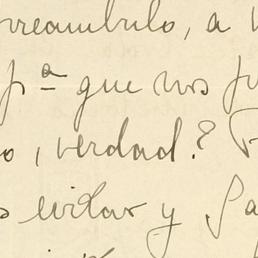 rreambulo, a
pª que nos
o, verdad? 
s evitar y